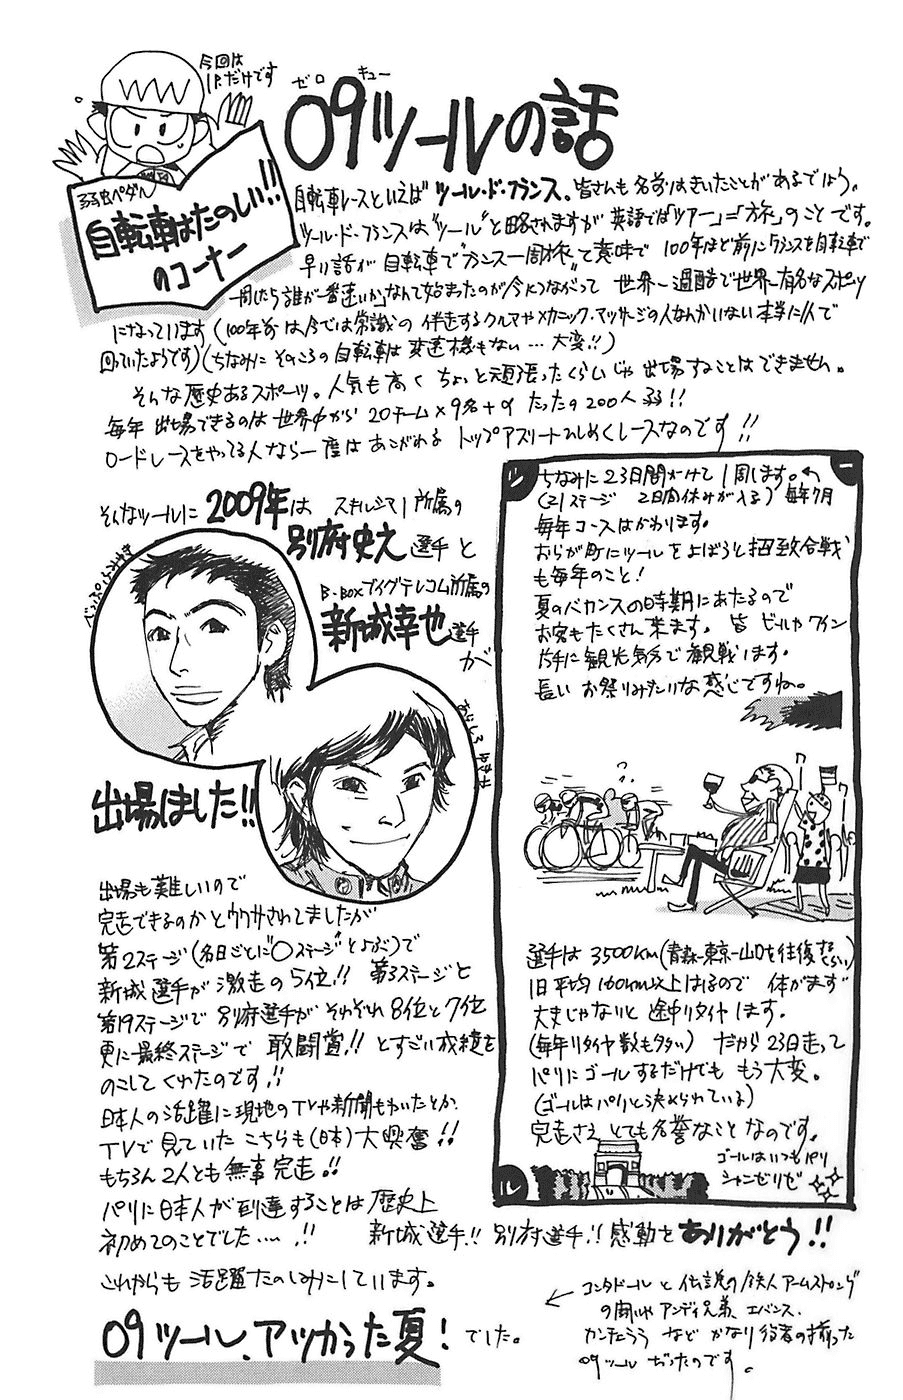 今回は
1P.だけです
ゼロ キュー
09ツールの話
弱虫ペダル
自転車はたのしい!!
のコーナー
自転車レースといえば ツール・ド・フランス、皆さんも名前はきいたことがあるでしょう。
ツール・ド・フランスは“ツール”と略されますが 英語では「ツアー」=「旅」のことです。
早い話が 自転車で“フランス一周旅”て意味で 100年ほど前に「フランスを自転車で
一周したら誰が一番速いか」なんて始まったのが今につながって 世界一過酷で世界一有名なスポーツ
になっています(100年前は今では常識の 伴走するクルマやメカニック、マッサージの人なんかいない本当に1人で
回っていたようです)(ちなみに そのころの自転車は 変速機もない…大変!!)
そんな歴史あるスポーツ。人気も高く ちょっと頑張ったくらいじゃ 出場することはできません。
毎年 出場できるのは 世界中から 20チーム×9名+α たったの200人弱!!
ロードレースをやってる人なら一度はあこがれる トップアスリートひしめくレースなのです!!
そんなツールに 2009年は スキル・シマノ所属の
別府史之選手と
べっぷ ふみゆき
B・BOXブイグテレコム所属の
新城幸也選手
が
あらしろ ゆきや
出場しました!!
出場も難しいので
完走できるのかとウワサされてましたが
第2ステージ(各日ごとに“○ステージ”とよぶ)で
新城選手が 激走の5位!! 第3ステージと
第19ステージで 別府選手が それぞれ8位と7位
更に最終ステージで 敢闘賞!! とすごい成績を
のこしてくれたのです!!
日本人の活躍に現地のTVや新聞もわいたとか、
TVで見ていた こちらも(日本)大興奮!!
もちろん2人とも無事完走!!
パリに日本人が到達することは歴史上
初めてのことでした…、!!
新城選手!! 別府選手!! 感動をありがとう!!
これからも 活躍たのしみにしています。
09ツール、アツかった夏! でした。
ツ
ー
ル
ちなみに23日間かけて 1周します。
(21ステージ 2日間休みが入る) 毎年7月
毎年コースはかわります。
おらが町にツールをよぼうと招致合戦
も毎年のこと!
夏のバカンスの時期にあたるので
お客もたくさん来ます。皆 ビールやワイン
片手に観光気分で観戦します。
長い お祭りみたいな感じですね。
選手は 3500km(青森-東京-山口を往復するくらい)
1日平均160km以上はしるので 体がまず
丈夫じゃないと 途中リタイヤします。
(毎年リタイヤ数も多い) だから 23日走って
パリにゴールするだけでも もう大変。
(ゴールはパリと決められている)
完走さえ とても名誉なことなのです。
ゴールはいつもパリ
シャンゼリゼ
コンタドールと 伝説の鉄人アームストロング
の闘いや アンディ兄弟、エバンス、
カンチェラーラ など かなり役者の揃った
09ツール だったのです。